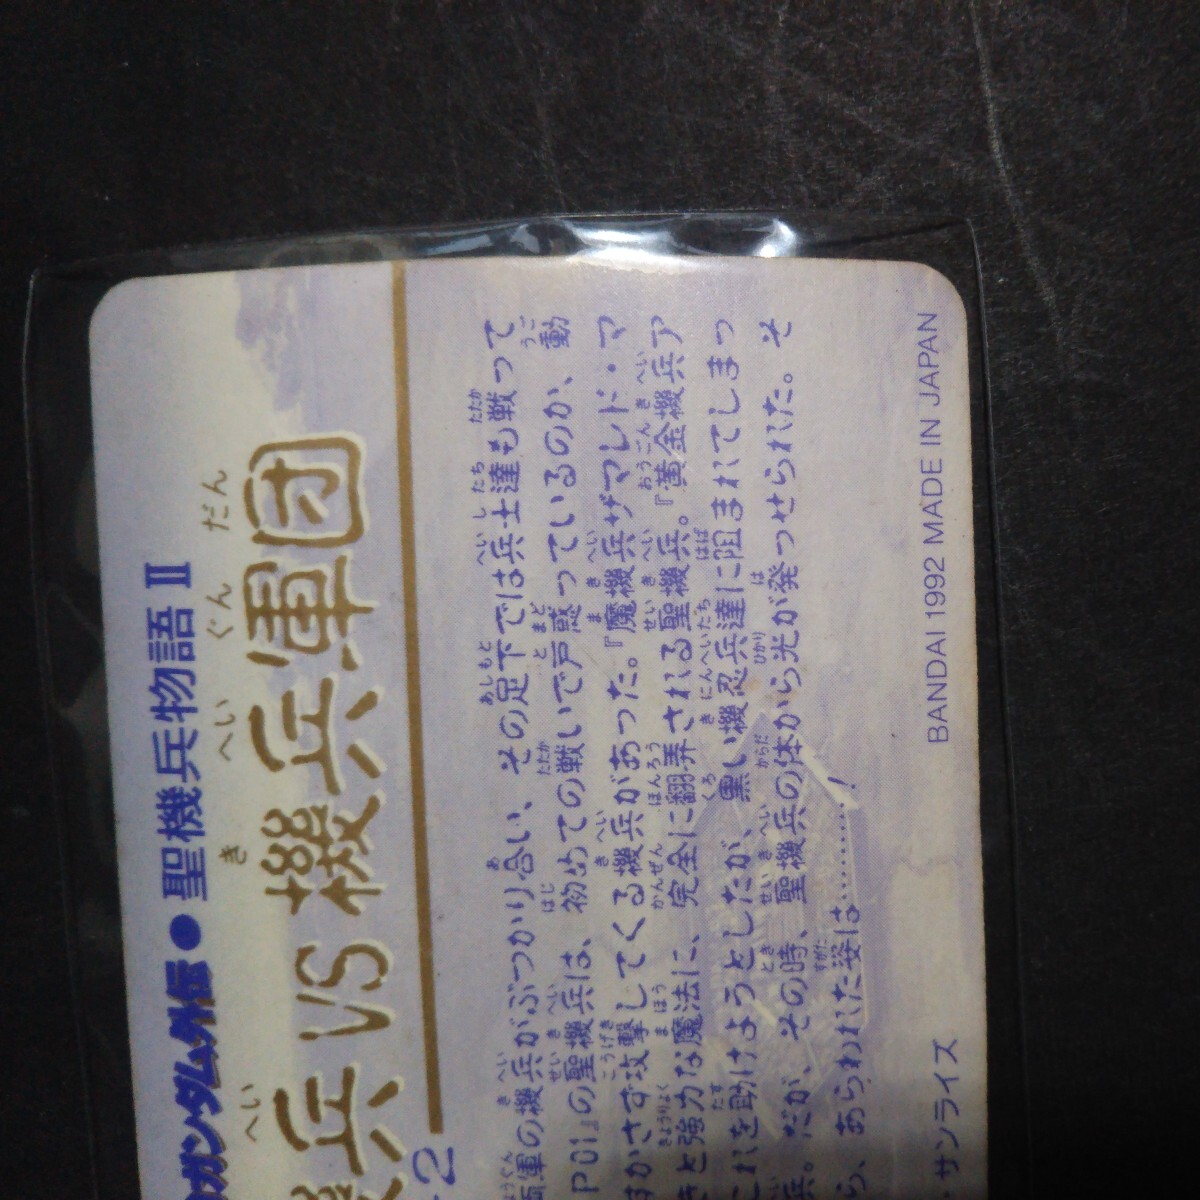 ガンダム外伝●聖機兵物語Ⅱ
兵VS機兵軍団
へい きへいぐんだん
2
軍の機兵がぶつかり合い、その足下では兵士達も戦って
P01』の聖機兵は、初めての戦いで戸惑っているのか、動
すかさず攻撃してくる機兵があった。『魔機兵ザマレド・マ
きと強力な魔法に、完全に翻弄される聖機兵。『黄金機兵ア
これを助けようとしたが、黒い機忍兵達に阻まれてしまっ
兵。だが、その時、聖機兵の体から光が発っせられた。そ
ら、あらわれた姿は………!
サンライズ
BANDAI 1992 MADE IN JAPAN